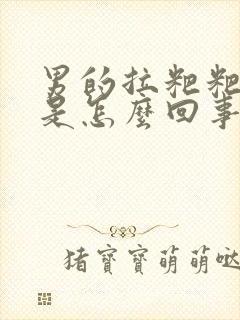 男的拉粑粑
是怎麼回事
猪寶寶萌萌哒